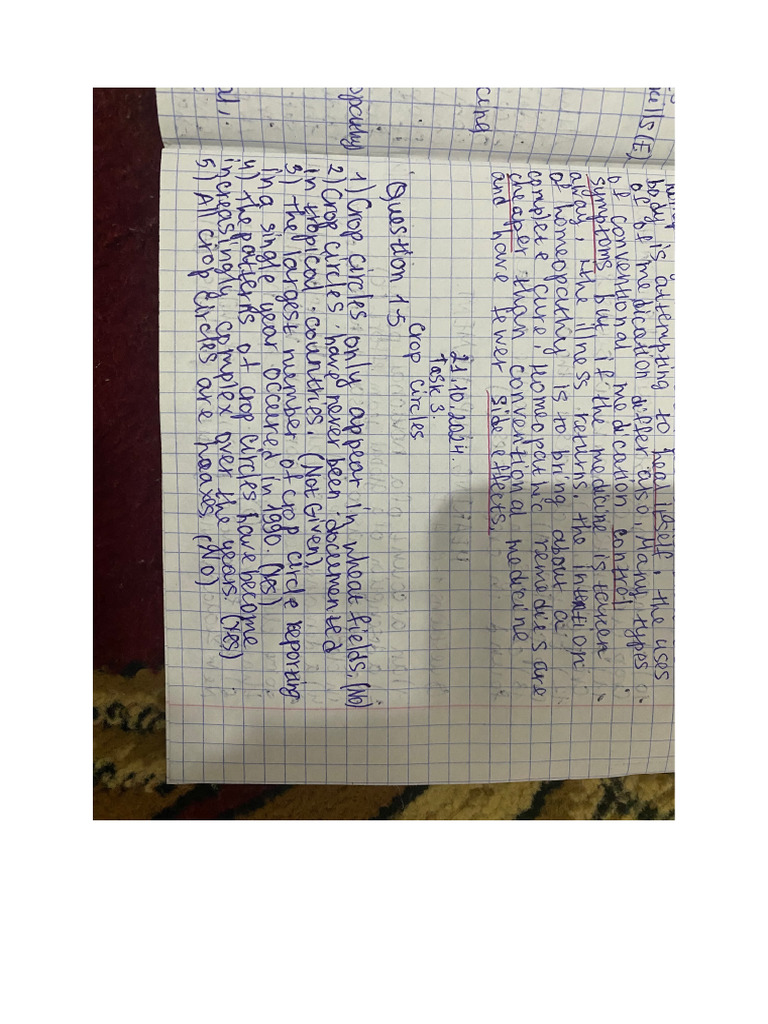 body is attempting to heal itself, the uses
of of medication differ also, Many types
of conventional medication control
symptoms but if the medicine is taken
away, the illness returns. the intention
of homeopathy is to bring about a
complete cure, Homeopathic remedies are
cheaper than conventional medicine
and have fewer side effects.
21.10.2024.
Task 3.
Crop circles
Question 1-5
1) Crop circles only appear in wheat fields. (No)
2) Crop circles have never been documented
in tropical countries. (Not Given)
3) the largest number of crop circle reporting
in a single year occured in 1990. (yes)
4) the patterns of crop circles have become
increasingly complex over the years. (yes)
5) All crop circles are hoaxes. (No)